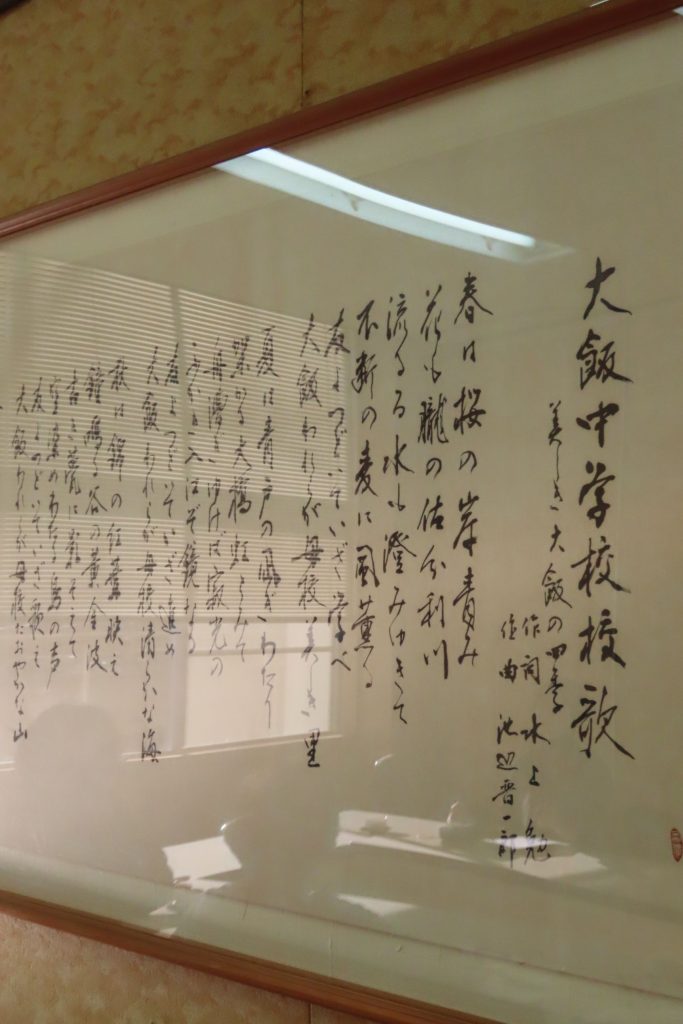 大飯中学校校歌
美しき大飯の四季
作詞 水上 勉
作曲 池辺晋一郎
春は桜の岸青み
花も朧の佐分利川
流るる水も澄みゆきて
不断の麦に風薫る
友よつどいていざ学べ
大飯われらが母校美しき里
夏は青戸の風ぎわたり
架かる大橋虹とみて
舟漕ぎゆけば寂光の
入江ぞ鏡なる
友よつどいていざ進め
大飯われらが母校清らかな海
秋は錦の紅葉映え
鐘鳴る谷の黄金波
古き甍に影そえて
空染めわたる鳥の声
友よつどいていざ歌え
大飯われらが母校たおやかな山